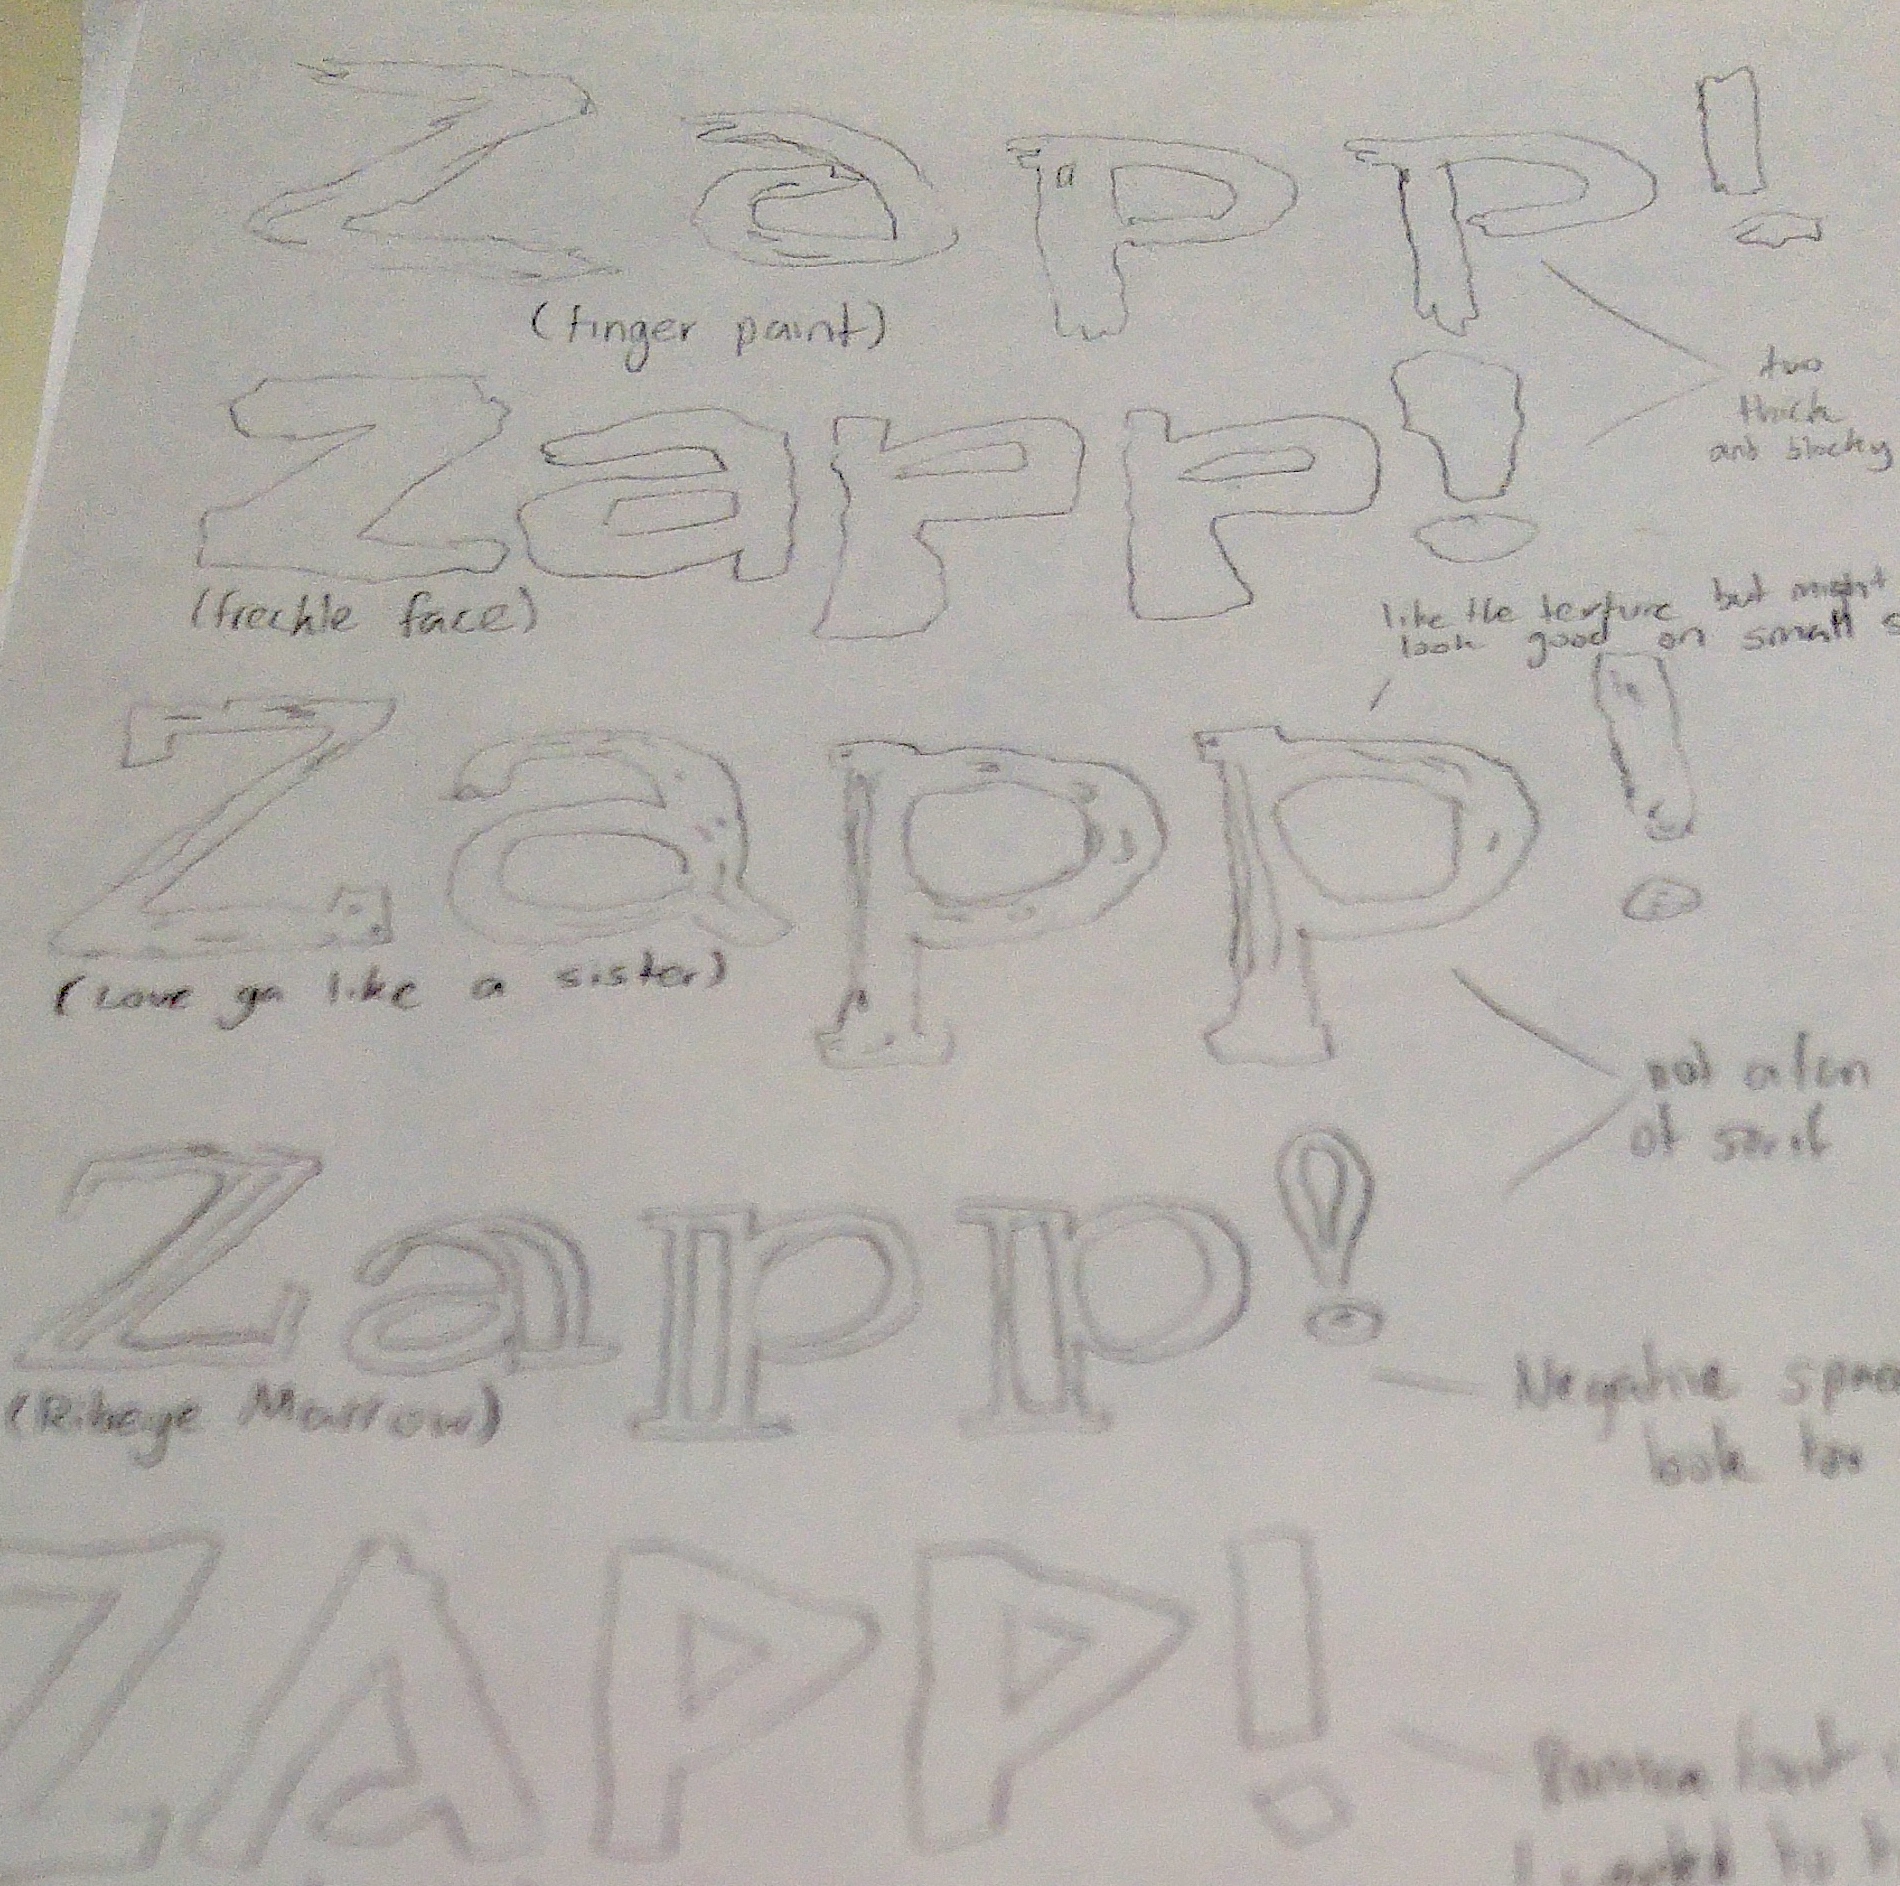 Zapp!
(finger paint)
too
thick
and blocky
Zapp!
(freckle face)
like the texture but might
look good on small s
Zapp!
(Love ya like a sister)
not a fan
of serif
Zapp!
(Ribeye Marrow)
Negative spac
look too
ZAPP!
font
to